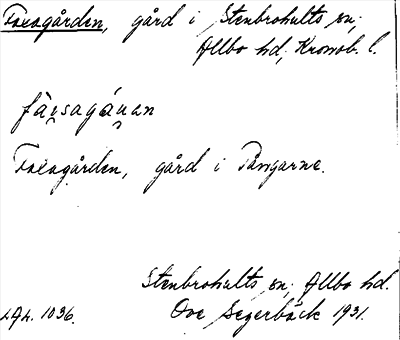 Foxagården, gård i Stenbrohults sn;
Allbo hd, Kronob. l.
fàɪsagánan
Foxagården, gård i Pångarne.
Stenbrohults sn; Allbo hd.
LAL. 1036. Ove Segerbäck 1931.